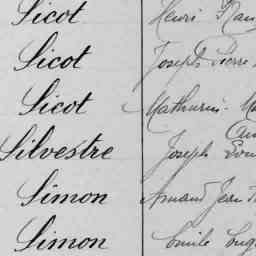 Sicot Henri
Sicot Joseph Pierre
Sicot Mathurin
Silvestre Joseph
Simon Armand Jean
Simon Emile